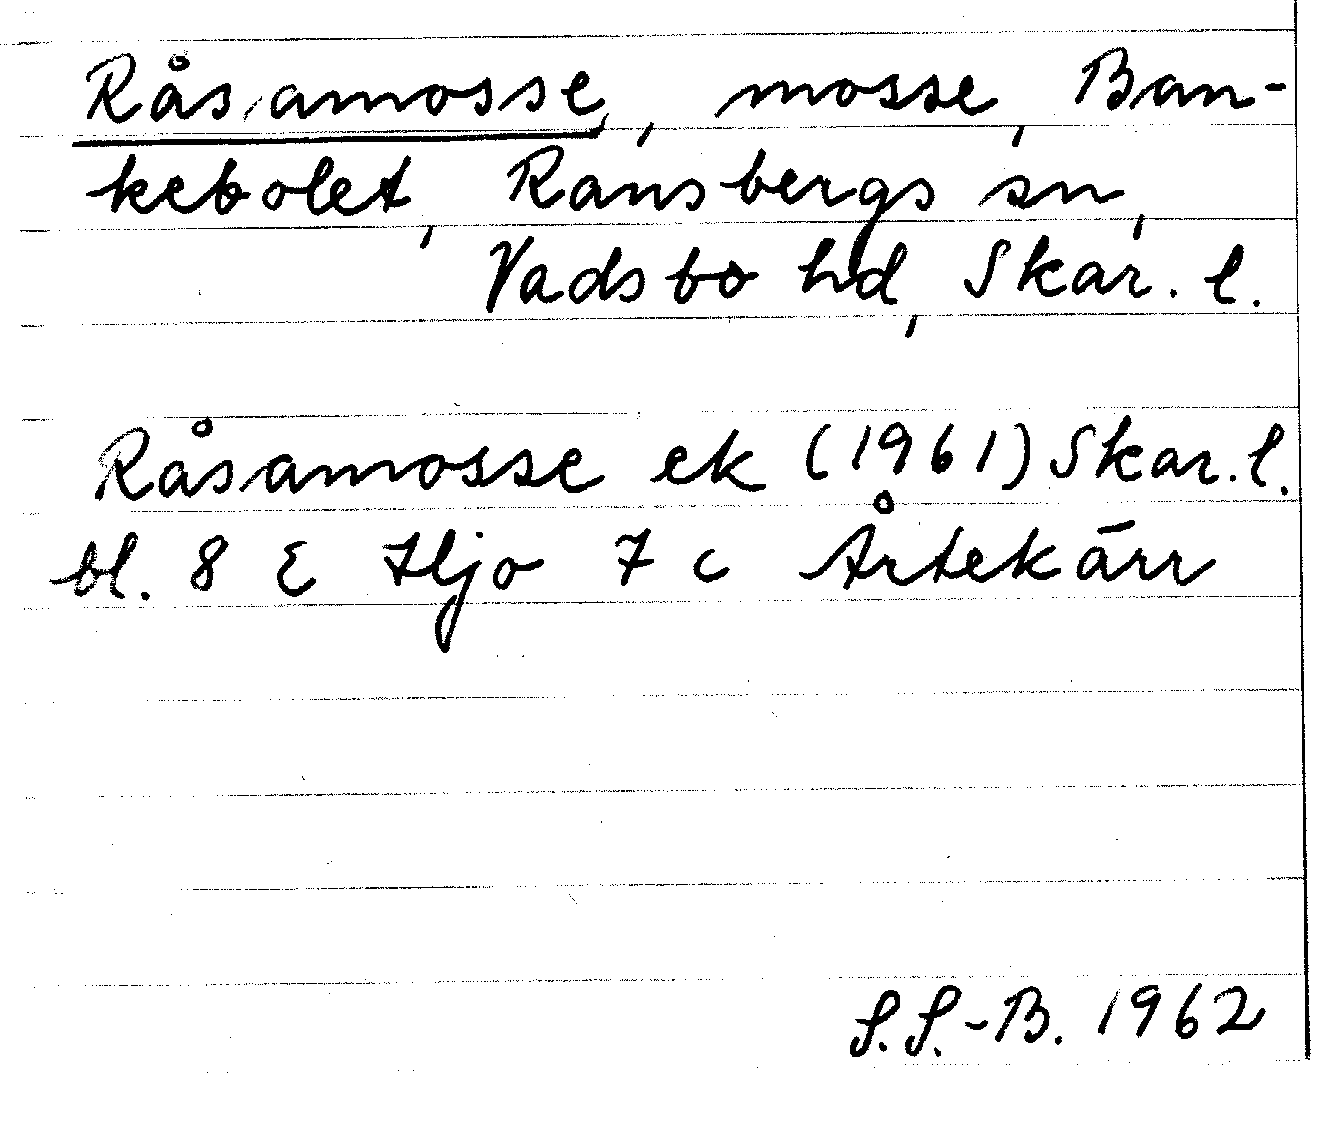 Råsamosse, mosse, Ban-
kebolet, Ransbergs sn,
Vadsbo hd, Skar. l.
Råsamosse ek (1961) Skar. l.
bl. 8 E Hjo 7 c Årtekärr
S. S.-B. 1962